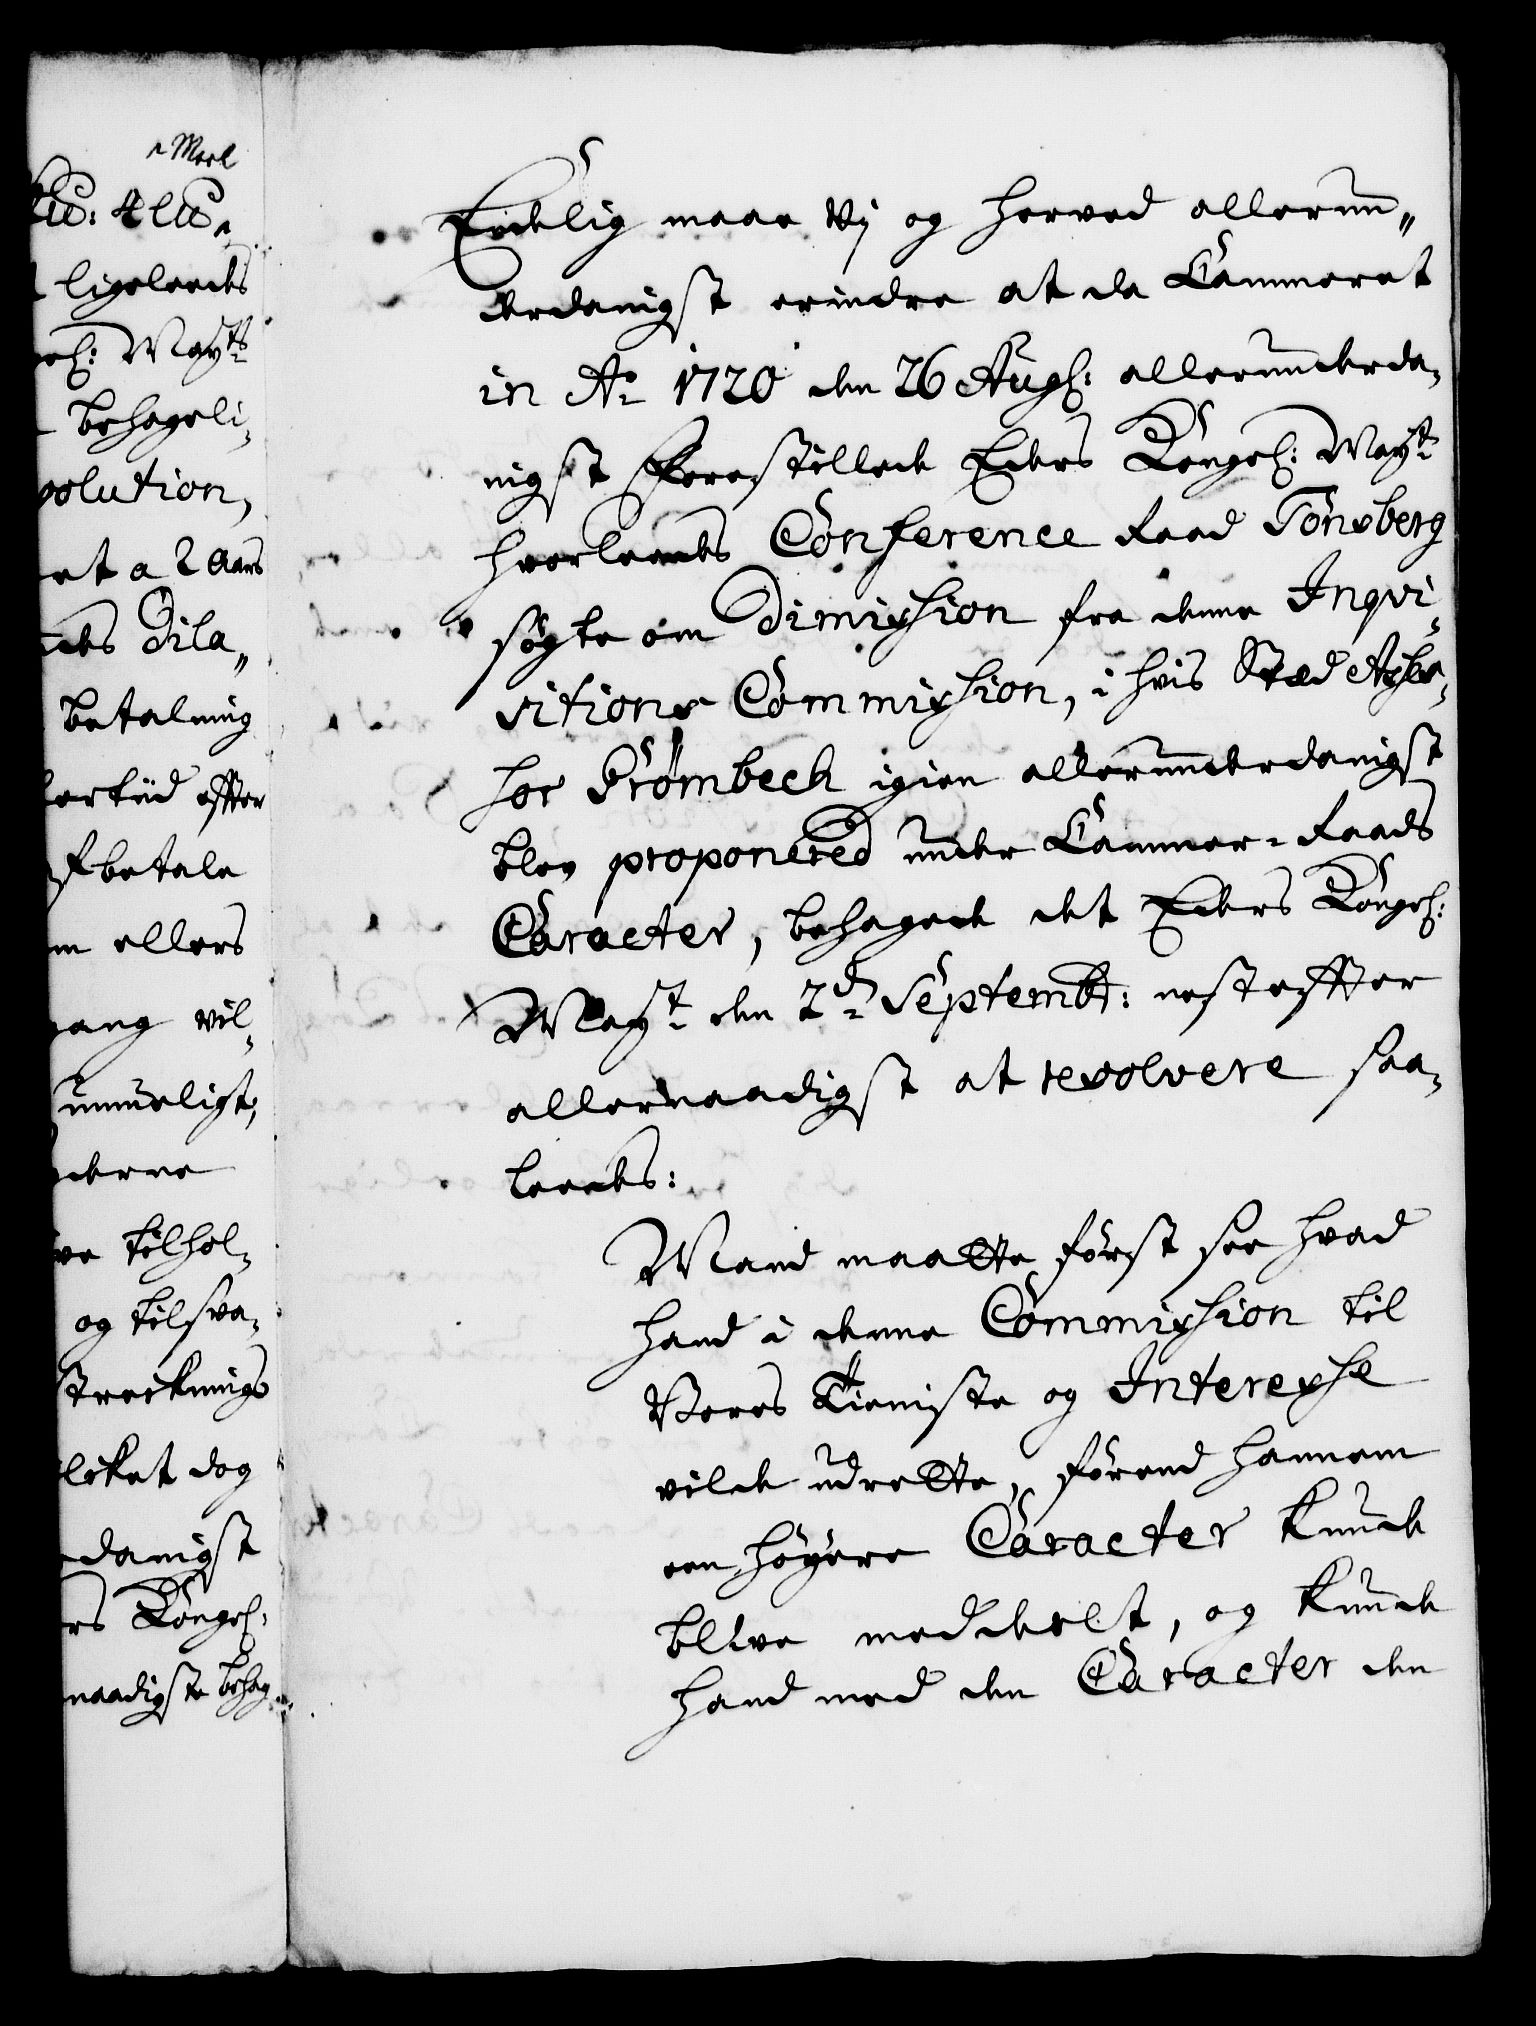 Mark
ligeleedes
Mayts
behageli-
solution,
et a 2 Aars
Dila„
betaling
tiid effter
betale
ellers
gang vil-
ummeligt,
derne
tilhol-
og tilsva-
strecknings
dog
danigst
Kongel:
naadigste behag
Endelig maae Vj og herved allerun„
derdanigst erindre at da Cammeret
in Ao 1720 den 26 Aug: allerunderda-
nigst forestillede Eders Kongel: Mayt
hvorleedes Conference Raad Tonsberg
søgte om Dimission fra denne Inqvi-
sitions Commission, i hvis Sted Asses-
sor Drømbech igien allerunderdanigst
blev proponered under Cammer-Raads
Caracter, behagede det Eders Kongel:
Mayt den 2d Septembr: nest effter
allernaadigst at resolvere saa-
leedes:
Mand maatte først see hvad
hand i denne Commission til
Vores Tieniste og Interesse
vilde udrette, førend hannem
een høyere Caracter kunde
blive meddeelt, og kunde
hand med den Caracter den